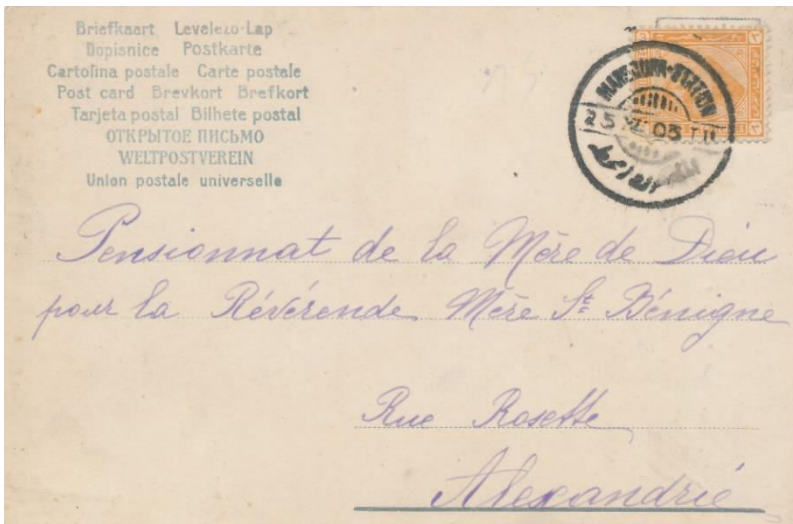 Briefkaart Levelezo-Lap
Dopisnice Postkarte
Cartolina postale Carte postale
Post card Brevkort Brefkort
Tarjeta postal Bilhete postal
ОТКРЫТОЕ ПИСЬМО
WELTPOSTVEREIN
Union postale universelle
MANSOURA-STATION
03 T II
Pensionnat de la Mère de Dieu
pour la Révérende Mère St Bénigne
Rue Rosette
Alexandrie